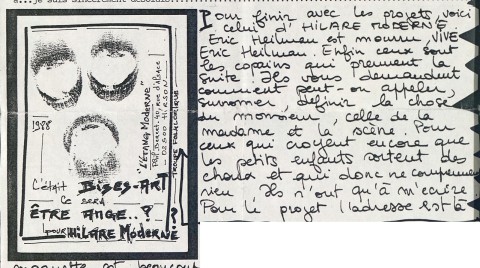 a...je suis sincèrement désolé...
1988
"L'ÉTANG MODERNE"
40, rue d'Alsace
02500 HIRSON
TROUPE FOLKLORIQUE
C'était BISES-ART
Ce SERA
ÊTRE ANGE..?
pour HILARE MODERNE ?
Pour finir avec les projets, voici
celui d'HILARE MODERNE
Eric Heilman est mourru, VIVE
Eric Heilman. Enfin ceux sont
les copains qui prennent la
suite. Ils vous demandent
comment peut-on appeler,
surnomer, définir la chose
du monsieur, celle de la
madame et la scène. Pour
ceux qui croyent encore que
les petits enfants sortent des
choux et qui donc ne comprennent
rien. Ils n'ont qu'à m'écrire
Pour le projet l'adresse est à
maquette est beaucoup